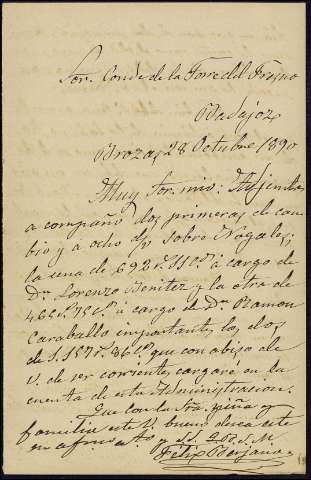 Sor. Conde de la Torre del Fresno
Badajoz
Brozas, 28 Octubre 1890
Muy Sor. mio: Adjuntas
acompaño dos primeras de cam
bio y a ocho d/v sobre Nogales;
la una de 692 á cargo de
Dn. Lorenzo Benitez y la otra de
á cargo de Dn. Ramon
Caraballo importantes las dos
de que con abiso de
V. de ser corriente cargaré en la
cuenta de esta Administracion.
Que con la Sra. niña y
familia este V. bueno desea este
su afmo.
Felix Berjano